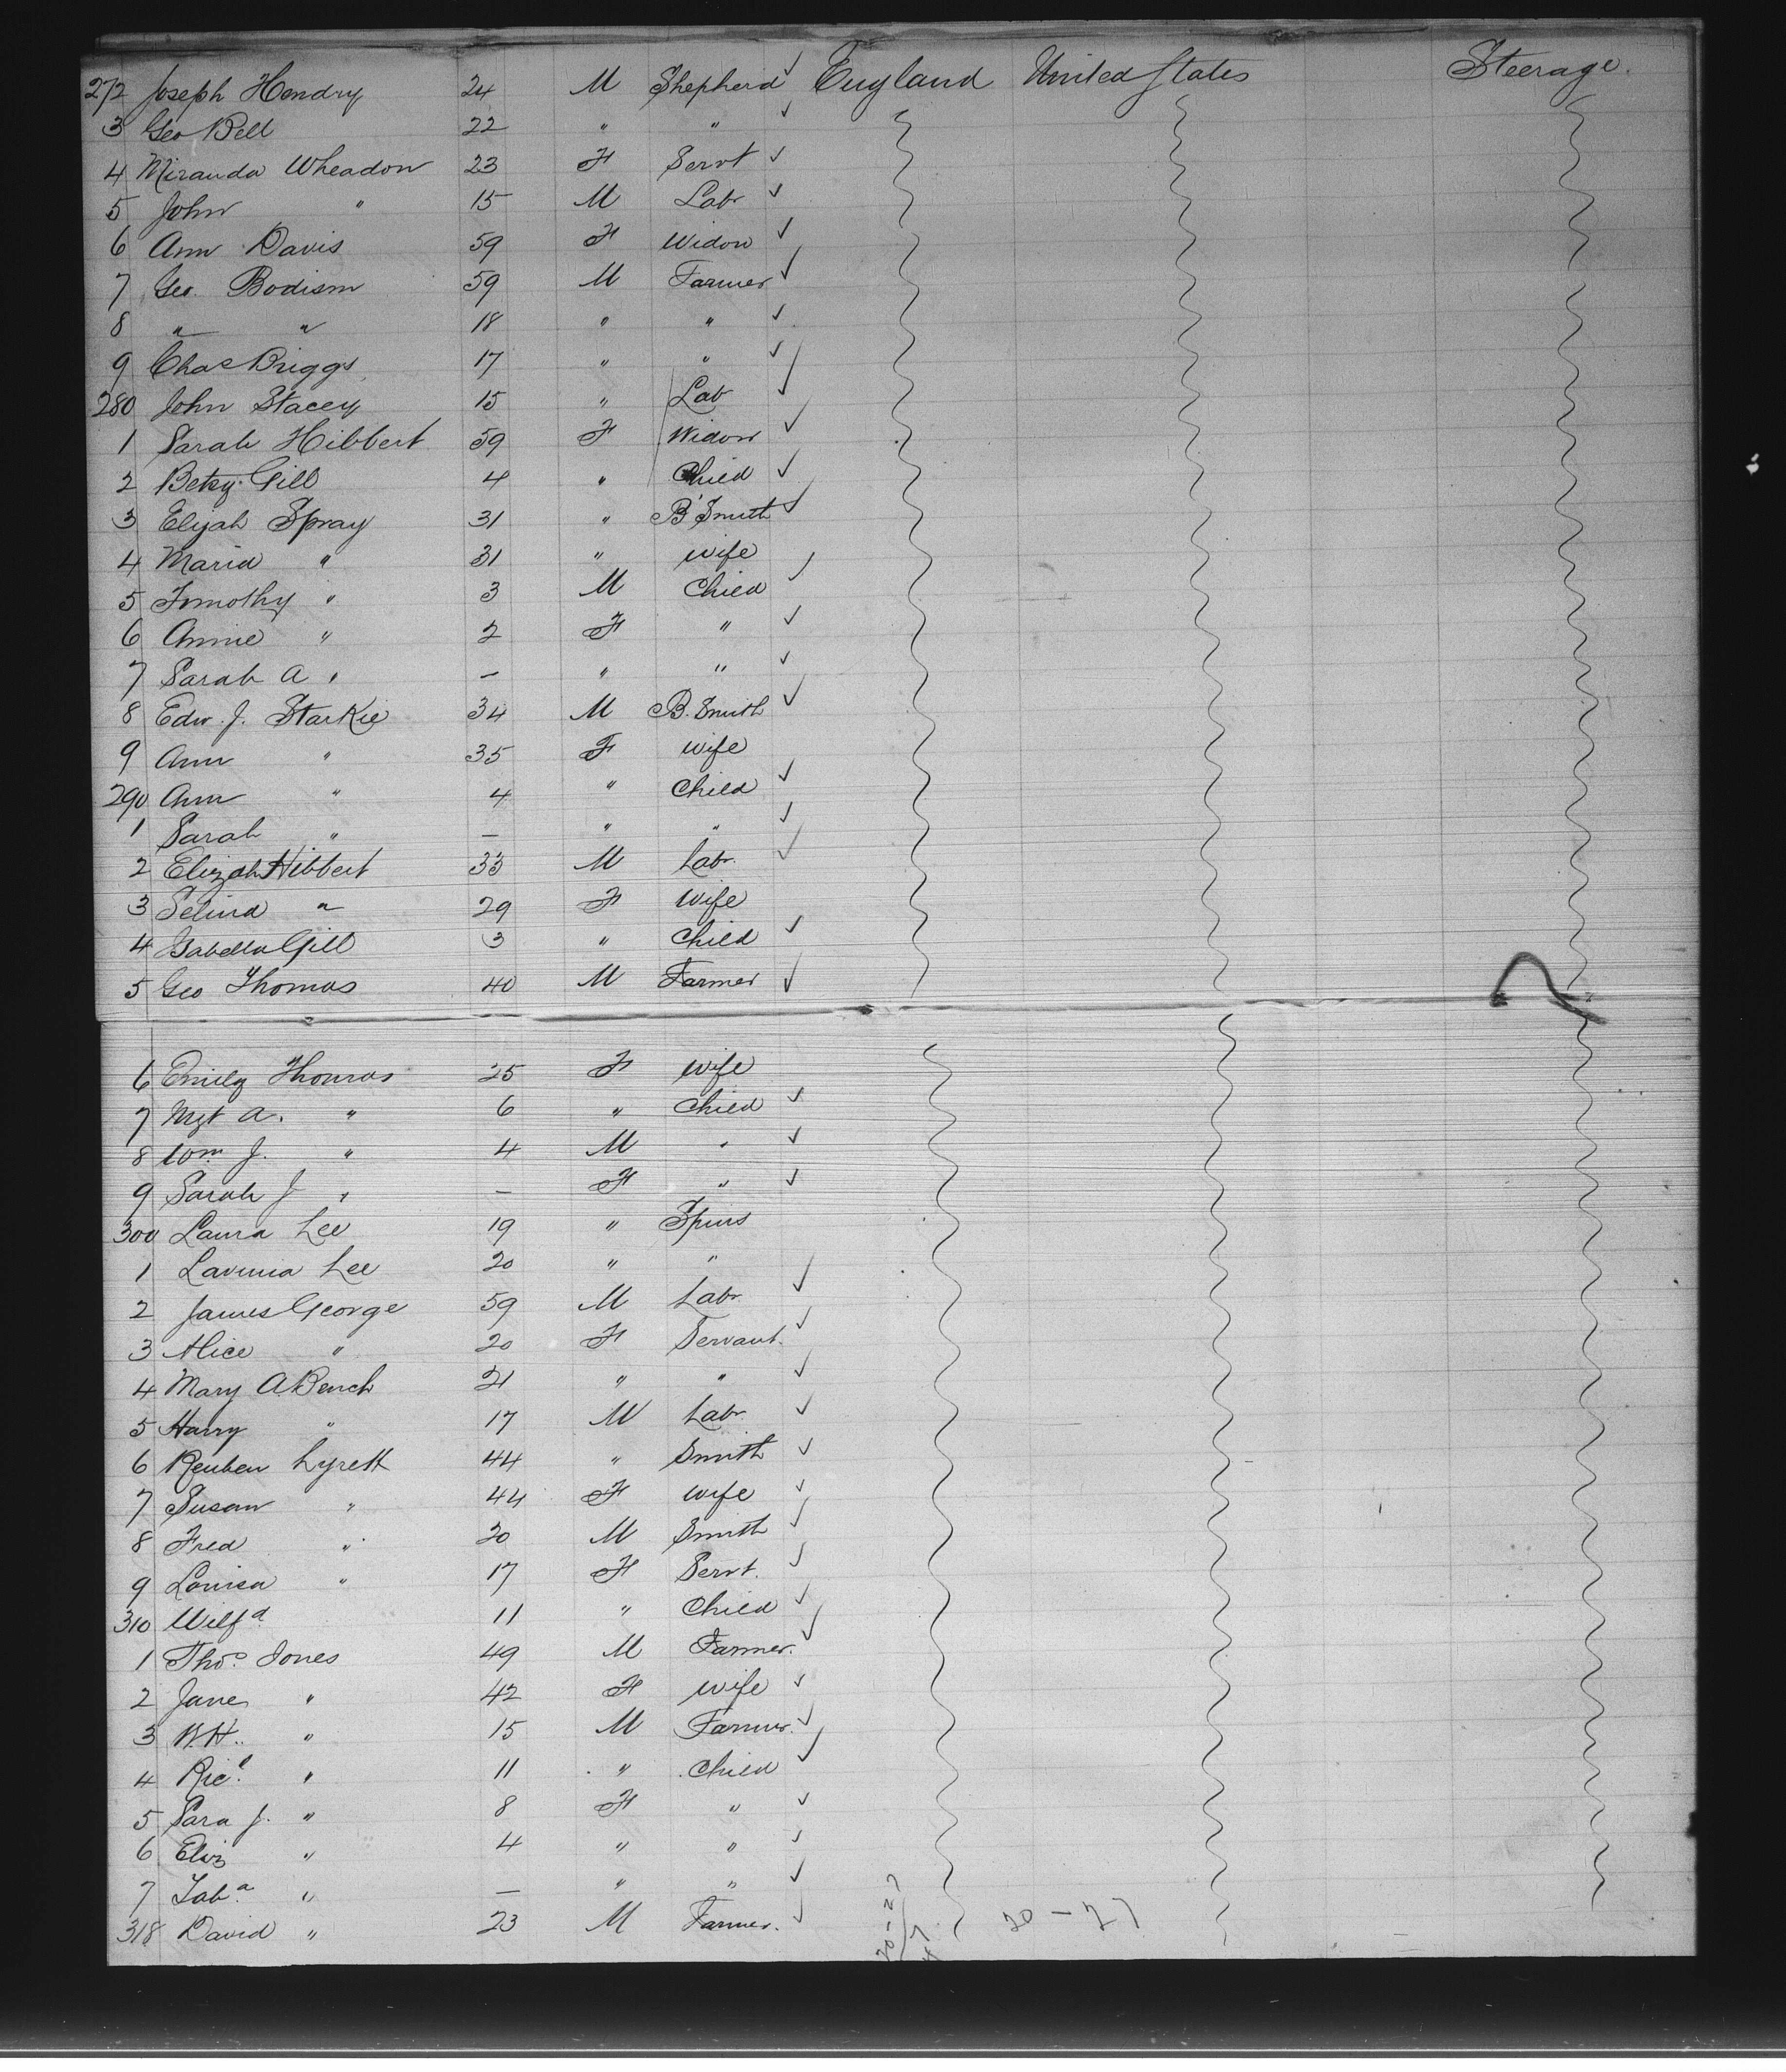 272 Joseph Hendry 24 M Shepherd ✓ England United States Steerage.
3 Geo Bell 22 " " ✓
4 Miranda Wheadon 23 F Servt ✓
5 John " 15 M Labr ✓
6 Ann Davis 59 F Widow ✓
7 Geo. Bodism 59 M Farmer ✓
8 " " 18 " " ✓
9 Chas Briggs 17 " " ✓
280 John Stacey 15 " Lab ✓
1 Sarah Hibbert 59 F Widow ✓
2 Betsy Gill 4 " Child ✓
3 Elijah Spray 31 " B'Smith ✓
4 Maria " 31 " wife
5 Timothy " 3 M Child ✓
6 Annie " 2 F " ✓
7 Sarah A " — " " ✓
8 Edw. J. Starkie 34 M B. Smith ✓
9 Ann " 35 F wife
290 Ann " 4 " Child ✓
1 Sarah " — " " ✓
2 Elizah Hibbert 33 M Labr. ✓
3 Selina " 29 F Wife
4 Isabella Gill 3 " Child ✓
5 Geo Thomas 40 M Farmer ✓
6 Emily Thomas 25 F Wife
7 Mgt A. " 6 " Child ✓
8 Wm J. " 4 M " ✓
9 Sarah J " — F " ✓
300 Laura Lee 19 " Spins
1 Lavinia Lee 20 " "
2 James George 59 M Labr ✓
3 Alice " 20 F Servant. ✓
4 Mary A Bench 21 " " ✓
5 Harry " 17 M Labr ✓
6 Reuben Lyrett 44 " Smith ✓
7 Susan " 44 F Wife ✓
8 Fred " 20 M Smith ✓
9 Louisa " 17 F Servt. ✓
310 Wilfd 11 " Child ✓
1 Thos. Jones 49 M Farmer. ✓
2 Jane " 42 F Wife ✓
3 W.H. " 15 M Farmer. ✓
4 Ricd. " 11 " Child ✓
5 Sara J. " 8 F " ✓
6 Eliz " 4 " " ✓
7 Taba " — " " ✓
318 David " 23 M Farmer. ✓ 20 - 27
20-27
47